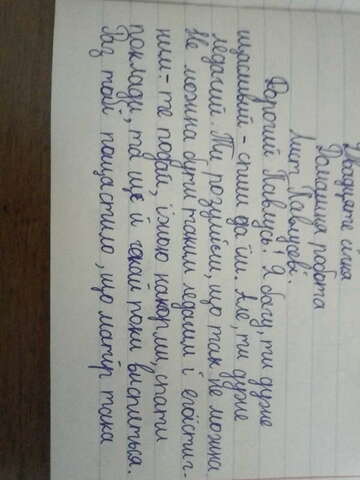 Двадцяте січня
Домашня робота
Лист Павлусеві.
Дорогий Павлусь! Я бачу, ти дуже
щасливий - спиш да їш. Але, ти дуже
ледасий. Ти розумієш, що так не можна
Не можна бути таким ледащи і егоїстиг-
ним - те подай, їжою накорми, спати
поклади, та ще й чекай поки виспиться.
Раз тобі пощастило, що матір така